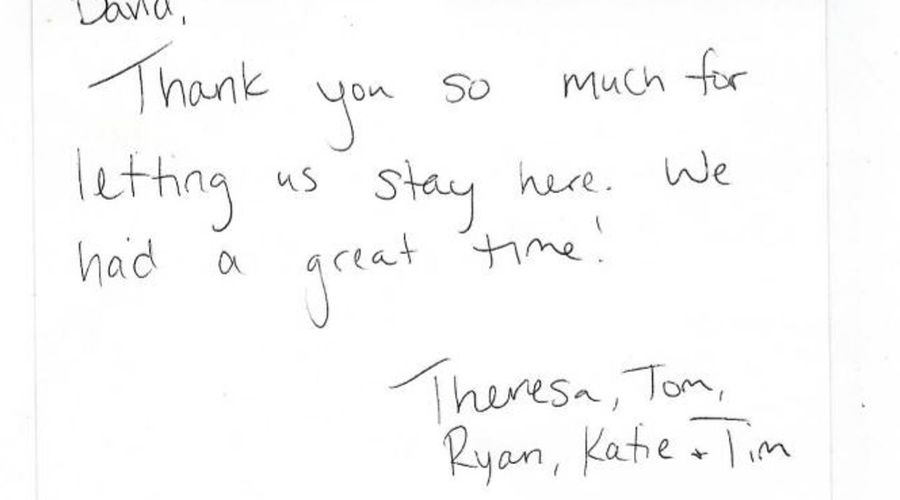 David,
Thank you so much for
letting us stay here. We
had a great time!
Theresa, Tom,
Ryan, Katie + Tim